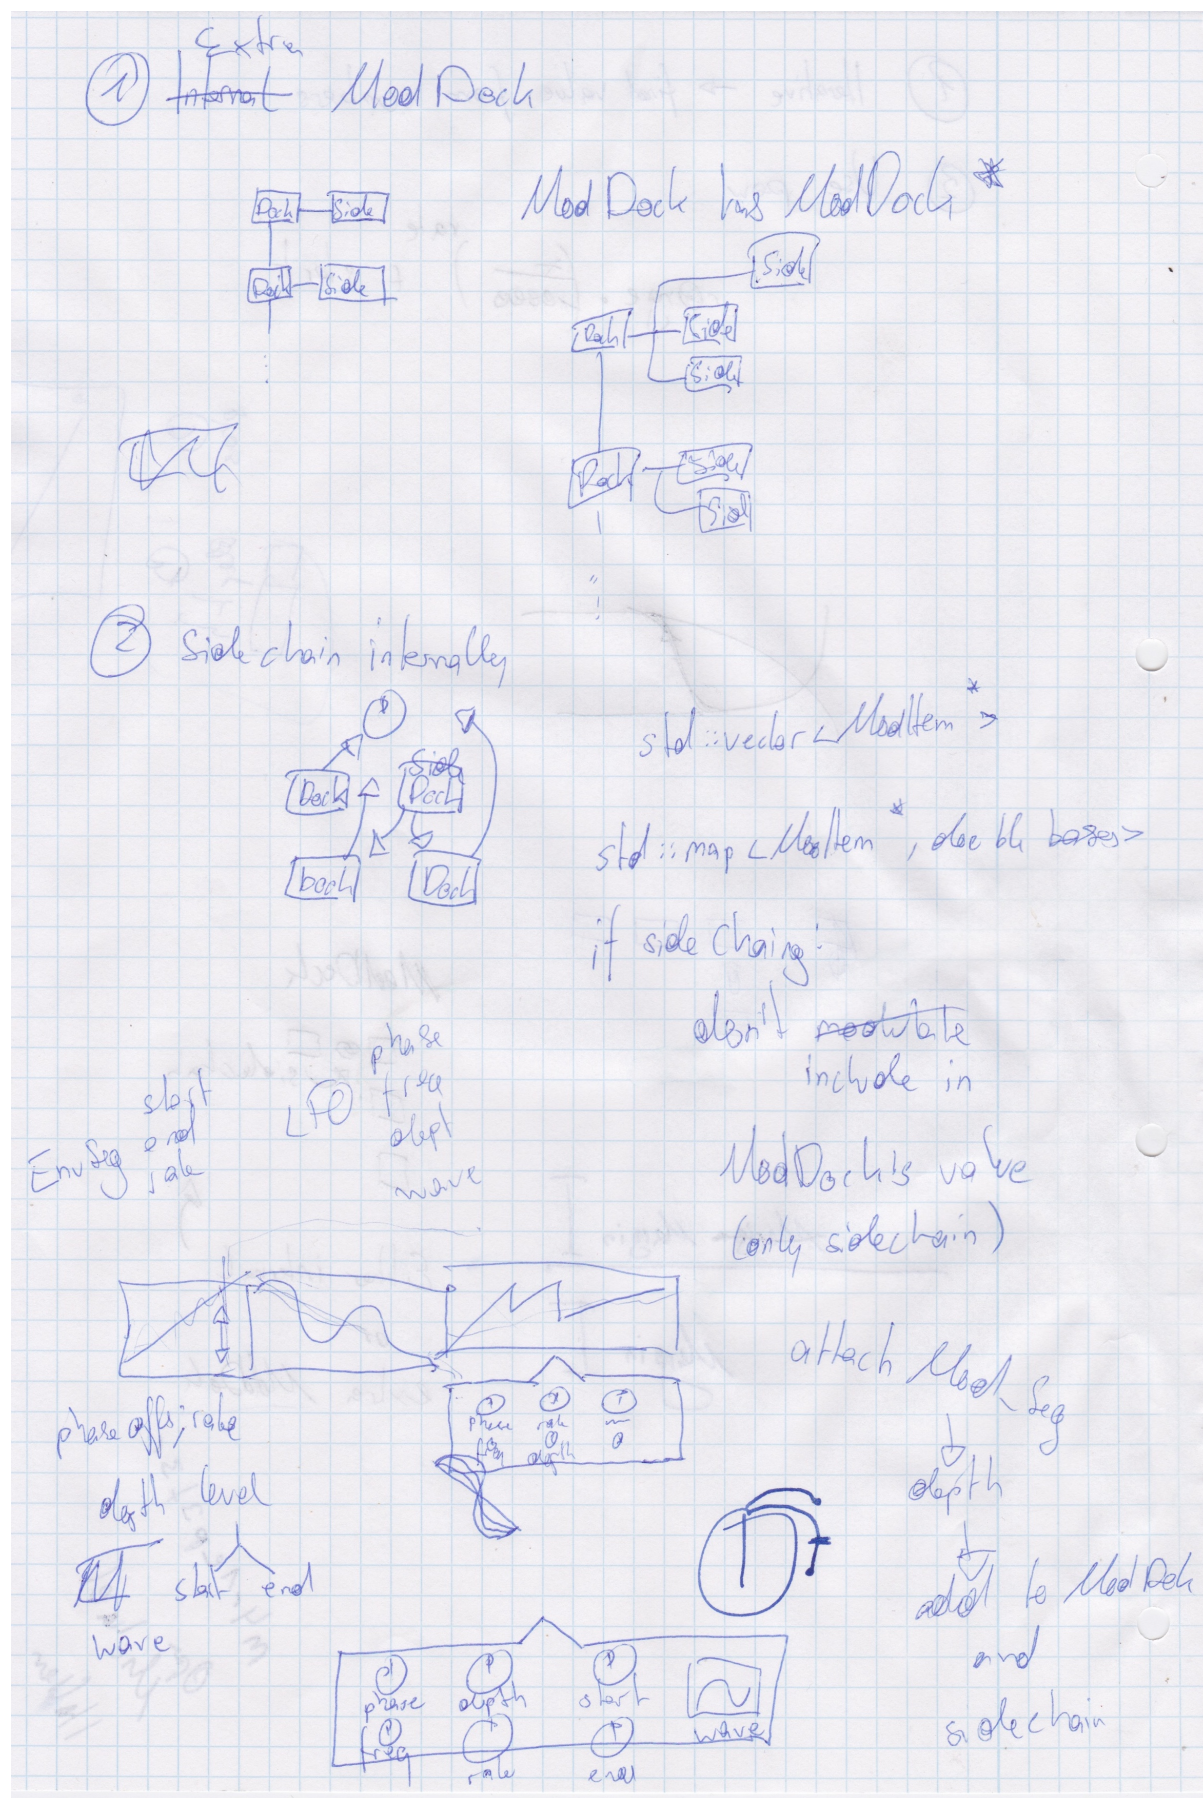 Extra
① Internal ModDock
ModDock has ModDock *
Dock Side
Dock Side
Side
Dock Side
Side
Dock Side
Side
② Sidechain internally
Dock Side
Dock
Dock Dock
std::vector<ModItem*>
std::map<ModItem*, double bases>
if sidechaing:
don't modulate
include in
ModDock's value
(only sidechain)
EnvSeg start
end
rate
LFO phase
freq
dept
wave
phase rate
freq depth
phase offs; rate
depth level
start end
wave
attach Mod_Seg
depth
add to ModDock
and
sidechain
phase depth start
freq rate end
wave